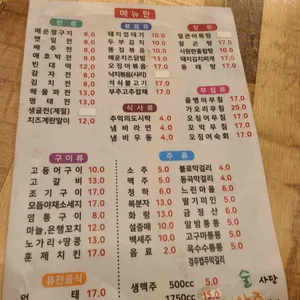 메뉴판
전류
매운정구지 8.0
깻잎전 8.0
배추전 8.0
애호박전 8.0
빈대떡 12.0
감자전 8.0
김치전 8.0
해물파전 13.0
명태전 13.0
생굴전(계절)
치즈계란말이 12.0
볶음류
돼지껍데기 10.0
두부김치 10.0
동집볶음 10.0
매운치즈닭발 13.0
오징어볶음 17.0
낙지볶음(사리)
석쇠불고기 17.0
부추고추잡채 17.0
탕류
알은탕 17.0
시원한홍합탕 10.0
돼지김치찌개 13.0
동태탕 17.0
무침류
골뱅이무침 17.0
가오리무침 25.0
오징어무침 17.0
꼬막무침 17.0
오징어숙회 17.0
식사류
추억의도시락 4.0
냄비라면 4.0
냄비우동 5.0
구이류
고등어구이 10.0
고갈비 13.0
조기구이 17.0
모듬야채소세지 17.0
염통구이 8.0
마늘,은행꼬치 12.0
노가리+땅콩 13.0
훈제치킨 17.0
주류
소주 5.0
맥주 5.0
청하 6.0
복분자 13.0
화랑 13.0
설중매 10.0
백세주 10.0
음료 2.0
불로막걸리 4.0
동곡막걸리
느린마을
딸기미인
금정산
알밤통통
고구마통통
옥수수통통
경주법주막걸리
퓨전음식
먹태 17.0
생맥주 500cc 5.0
1750cc 15.0
술 사단